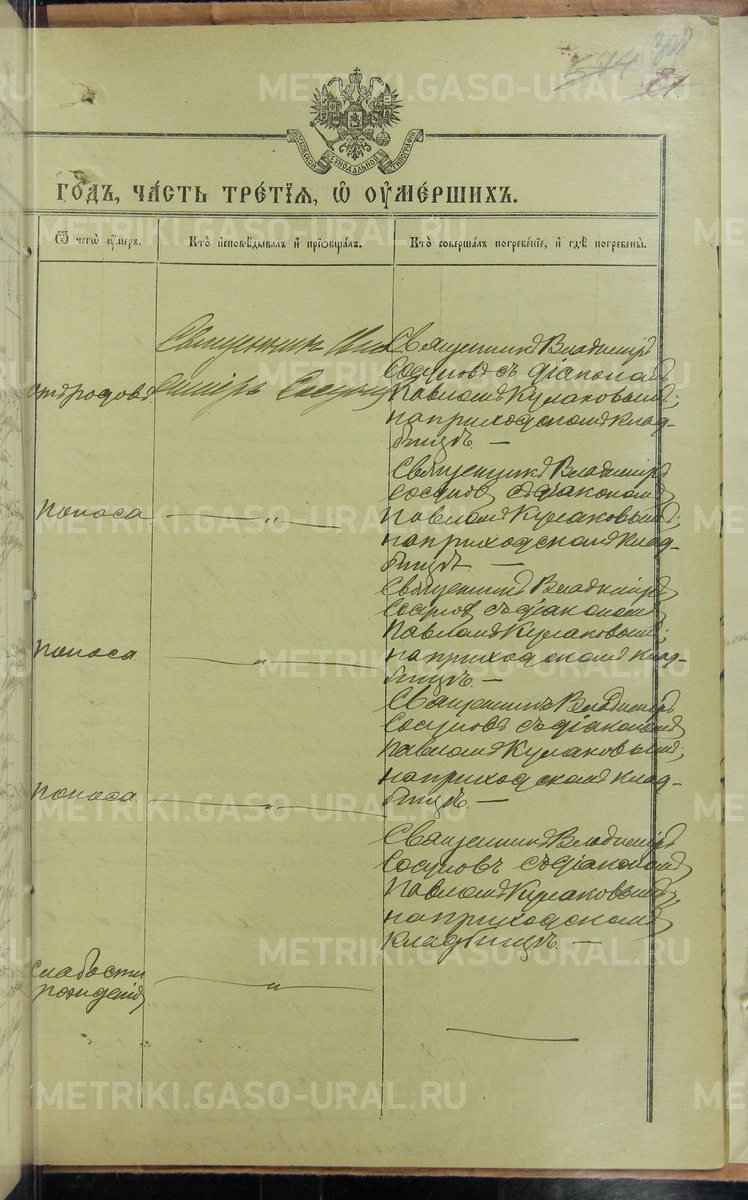 574 308
81
МОСКОВСКОЙ СѴНОДАЛЬНОЙ ТИПОГРАФІИ
ГОДЪ, ЧА́СТЬ ТРЕ́ТІЯ, Ѡ ОУ҆МЕ́РШИХЪ.
Ѿ чегѡ̀ оу҆́меръ.
Кто̀ и҆сповѣ́дывалъ и҆ прїѡбща́лъ.
Кто̀ соверша́лъ погребе́нїе, и҆ гдѣ̀ погребены̀.
отъ родовъ
Священникъ
Священникъ Владиміръ
Сосуновъ съ діакономъ
Павломъ Кулаковымъ;
на приходскомъ клад-
бищѣ. —
поноса
— „ —
Священникъ Владиміръ
Сосуновъ съ діакономъ
Павломъ Кулаковымъ;
на приходскомъ клад-
бищѣ. —
поноса
— „ —
Священникъ Владиміръ
Сосуновъ съ діакономъ
Павломъ Кулаковымъ;
на приходскомъ клад-
бищѣ. —
поноса
— „ —
Священникъ Владиміръ
Сосуновъ съ діакономъ
Павломъ Кулаковымъ;
на приходскомъ клад-
бищѣ. —
слабости
рожденія
— „ —
Священникъ Владиміръ
Сосуновъ съ діакономъ
Павломъ Кулаковымъ,
на приходскомъ
кладбищѣ. —
METRIKI.GASO-URAL.RU